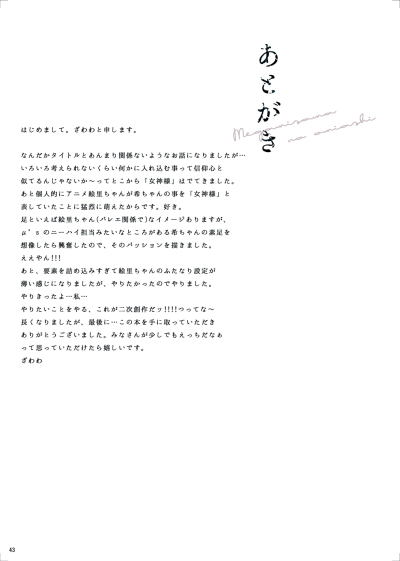 あとがき
Megamisama
no oniashi
はじめまして。ざわわと申します。
なんだかタイトルとあんまり関係ないようなお話になりましたが…
いろいろ考えられないくらい何かに入れ込む事って信仰心と
似てるんじゃないか〜ってとこから「女神様」はでてきました。
あと個人的にアニメ絵里ちゃんが希ちゃんの事を「女神様」と
表していたことに猛烈に萌えたからです。好き。
足といえば絵里ちゃん(バレエ関係で)なイメージありますが、
μ'sのニーハイ担当みたいなところがある希ちゃんの素足を
想像したら興奮したので、そのパッションを描きました。
ええやん!!!
あと、要素を詰め込みすぎて絵里ちゃんのふたなり設定が
薄い感じになりましたが、やりたかったのでやりました。
やりきったよ…私…
やりたいことをやる、これが二次創作だッ!!!!つってな〜
長くなりましたが、最後に…この本を手に取っていただき
ありがとうございました。みなさんが少しでもえっちだなぁ
って思っていただけたら嬉しいです。
ざわわ
43